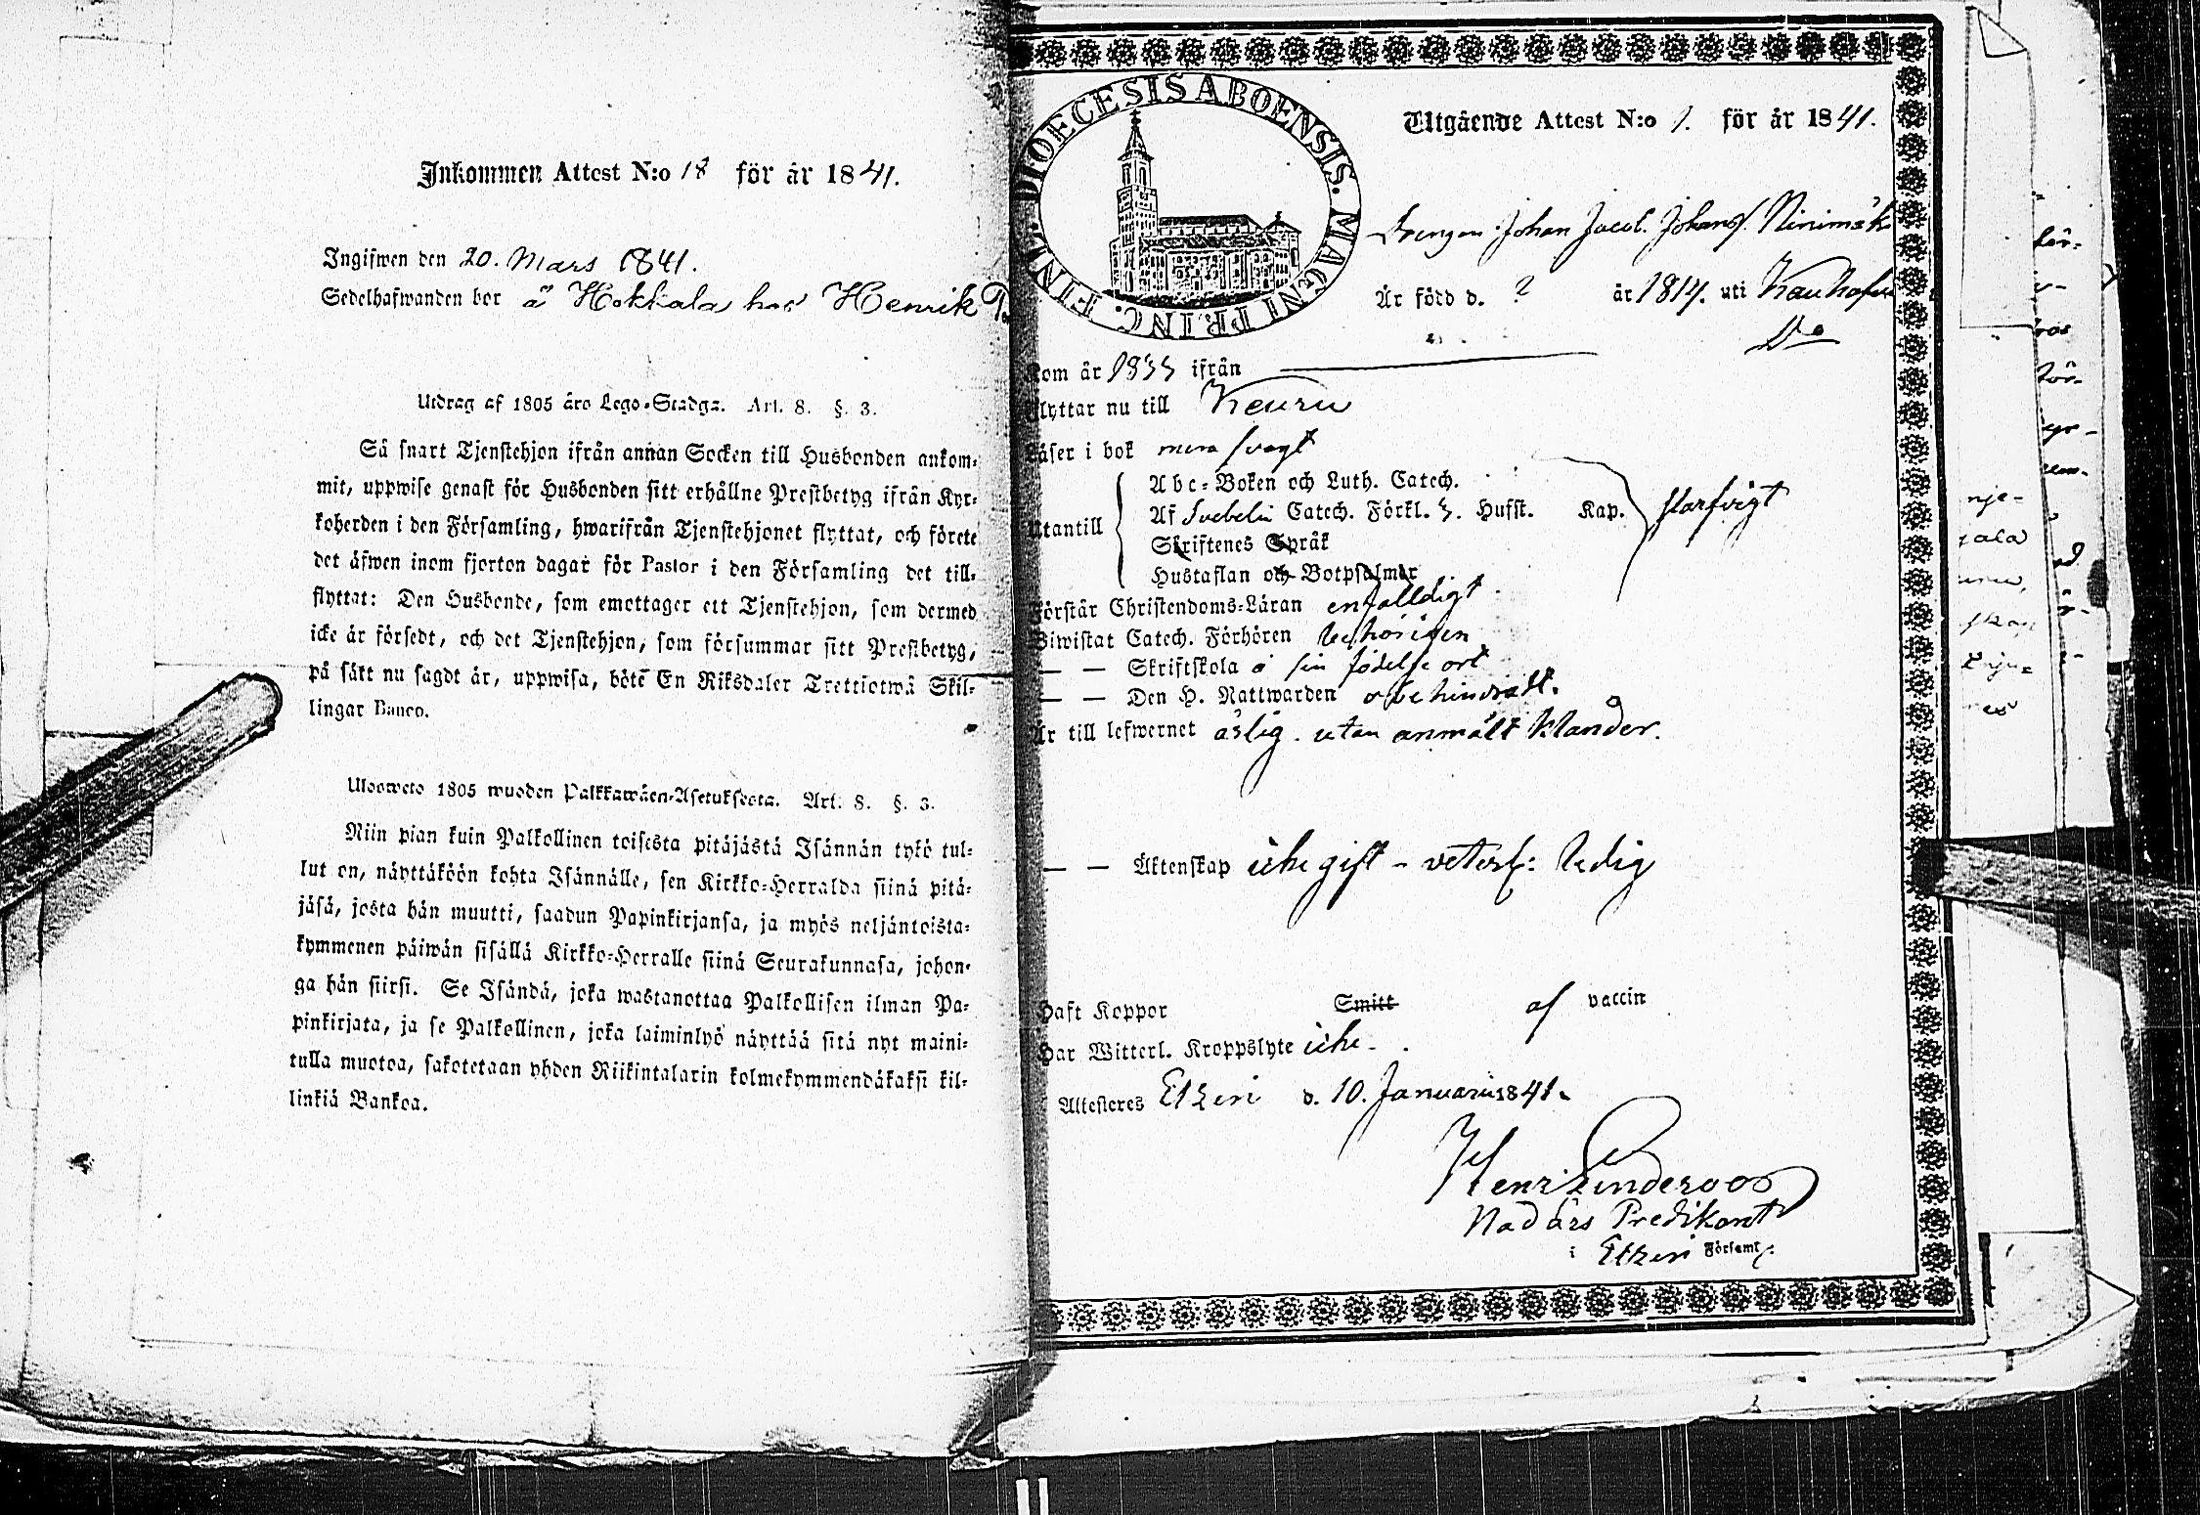 Inkommen Attest N:o 18 för år 1841.
Ingifwen den 20. Mars 1841.
Sedelhafwanden bor å Hokkala hos Henrik
Utdrag af 1805 års Lego-Stadga. Art. 8. §. 3.
Så snart Tjenstehjon ifrån annan Socken till Husbonden ankom-
mit, uppwise genast för Husbonden sitt erhållne Prestbetyg ifrån Kyr-
koherden i den Församling, hwarifrån Tjenstehjonet flyttat, och förete
det äfwen inom fjorton dagar för Pastor i den Församling det till-
flyttat: Den Husbonde, som emottager ett Tjenstehjon, som dermed
icke är försedt, och det Tjenstehjon, som försummar sitt Prestbetyg,
på sätt nu sagdt är, uppwisa, böte En Riksdaler Trettiotwå Skil-
lingar Banco.
Ulosweto 1805 wuoden Palkkawäen-Asetuksesta. Art. 8. §. 3.
Niin pian kuin Palkollinen toisesta pitäjästä Isännän tykö tul-
lut on, näyttäköön kohta Isännälle, sen Kirkko-Herralda siinä pitä-
jäsä, josta hän muutti, saadun Papinkirjansa, ja myös neljäntoista-
kymmenen päiwän sisällä Kirkko-Herralle siinä Seurakunnasa, johon-
ga hän siirsi. Se Isändä, joka wastanottaa Palkollisen ilman Pa-
pinkirjata, ja se Palkollinen, joka laiminlyö näyttää sitä nyt maini-
tulla muotoa, sakotetaan yhden Riikintalarin kolmekymmendäkaksi kil-
linkiä Bankoa.
DIOECESIS ABOENSIS. MAGNI PRINC. FINL.
Utgående Attest N:o 1. för år 1841.
Drengen Johan Jacob Johans.
Är född d. ? år 1814. uti
Do
kom år 1833 ifrån
flyttar nu till Keuru
Läser i bok mera svagt
Abc-Boken och Luth. Catech.
Utantill Af Svebelii Catech. Förkl. 3. Husst. Kap. Skarfvigt
Skriftenes Språk
Hustaflan och Botpsalmer
Förstår Christendoms-Läran enfalldigt
Biwistat Catech. Förhören behörigen
— — Skriftskola å sin födelse ort
— — Den H. Nattwarden obehindradt.
Är till lefwernet ärlig. utan anmält klander.
— — Äktenskap icke gift - veterl: ledig
Haft Koppor Smitt af vaccin
Har Witterl. Kroppslyte icke.
Attesteres Etzeri d. 10. Januarii 1841.
Henr Linderoos
Nadårs Predikant
i Etzeri Församl: